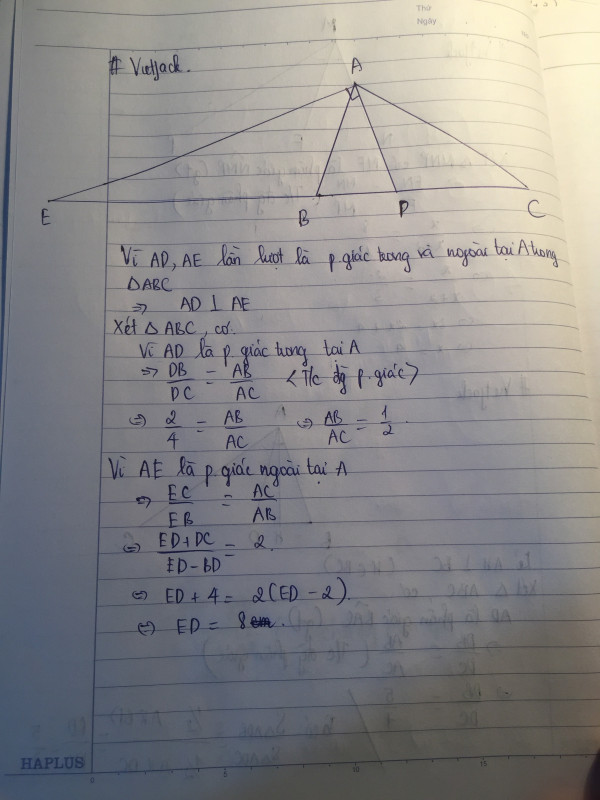 Thứ
Ngày
# Vietjack.
A
E
B
D
C
Vì AD, AE lần lượt là p.giác trong và ngoài tại A trong
△ABC
=> AD ⊥ AE
Xét △ABC, có:
Vì AD là p.giác trong tại A
=> DB/DC = AB/AC <T/c đg p.giác>
=> 2/4 = AB/AC => AB/AC = 1/2.
Vì AE là p.giác ngoài tại A
=> EC/EB = AC/AB
=> ED+DC/ED-BD = 2.
⇔ ED + 4 = 2(ED - 2).
⇔ ED = 8
HAPLUS
0 5 10 15